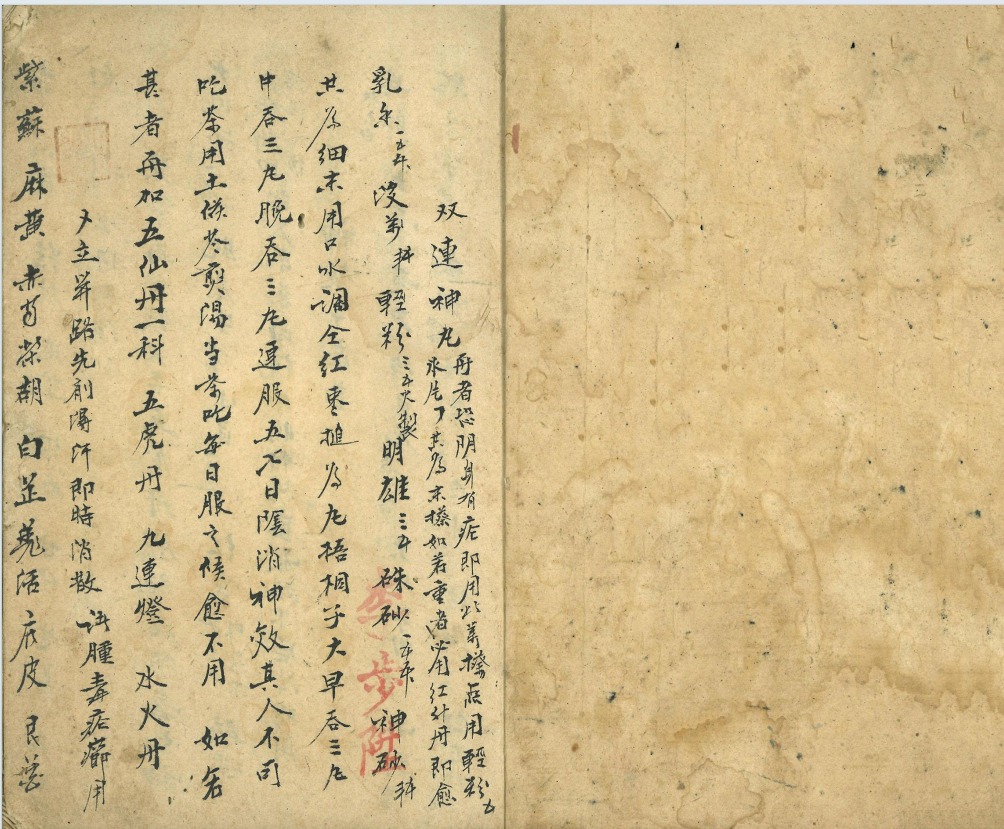 双連神丸
再者恐阴身有疮即用此藥搽应用輕粉五
氷片丁共為末搽如若重者必用红升丹即愈
乳香一五个 没藥 輕粉三五火製 明雄三 硃砂一五个 神砂
共為細末用口水調仝红棗搥為丸梧桐子大早吞三丸
中吞三丸晚吞三丸連服五七日陰消神效其人不可
吃茶用土茯苓煎湯当茶吃每日服之候愈不用 如若
甚者再加五仙丹一科 五虎丹 九連燈 水火丹
立昇路先刮得汗即時消散 腫毒疮癤用
紫蘇 麻黄 赤芍 柴胡 白芷 羌活 皮